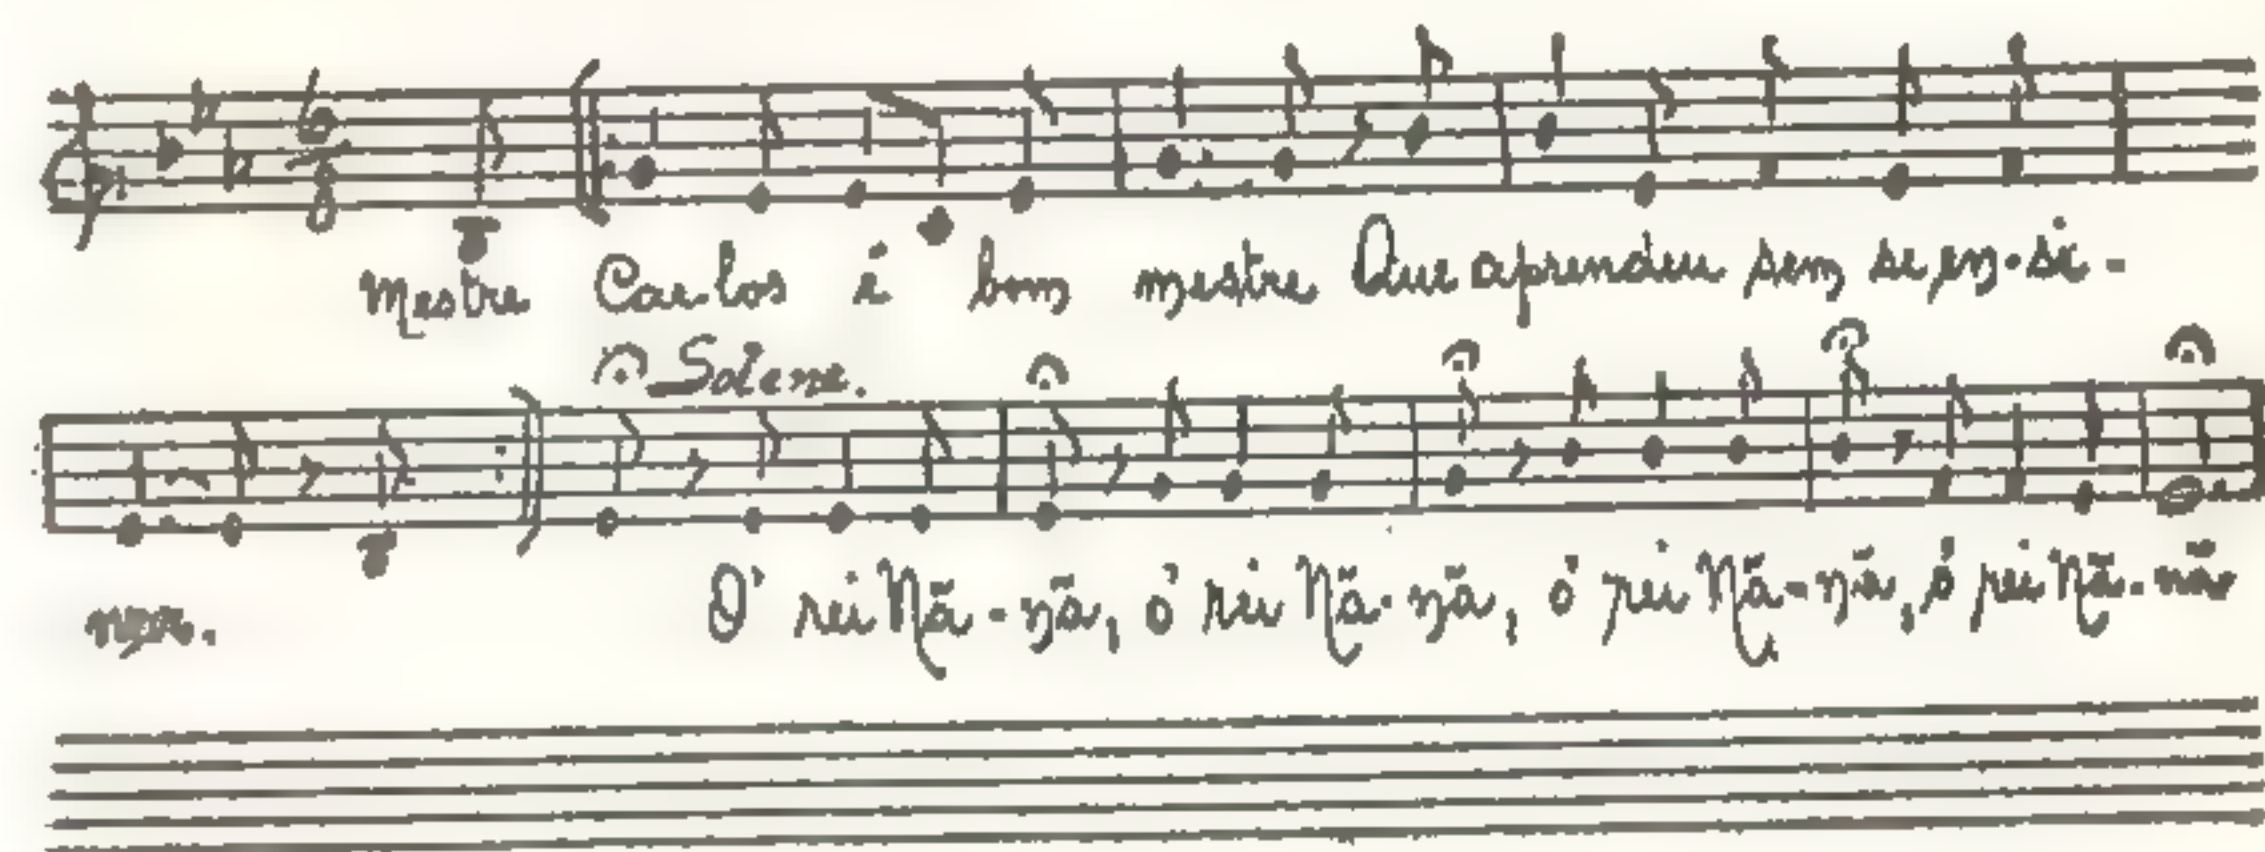 Mestre Carlos é bom mestre Que aprendeu sem se en-si-
Solene.
nar. O' rei Nã-nã, o' rei Nã-nã, o' rei Nã-nã, o' rei Nã-nã